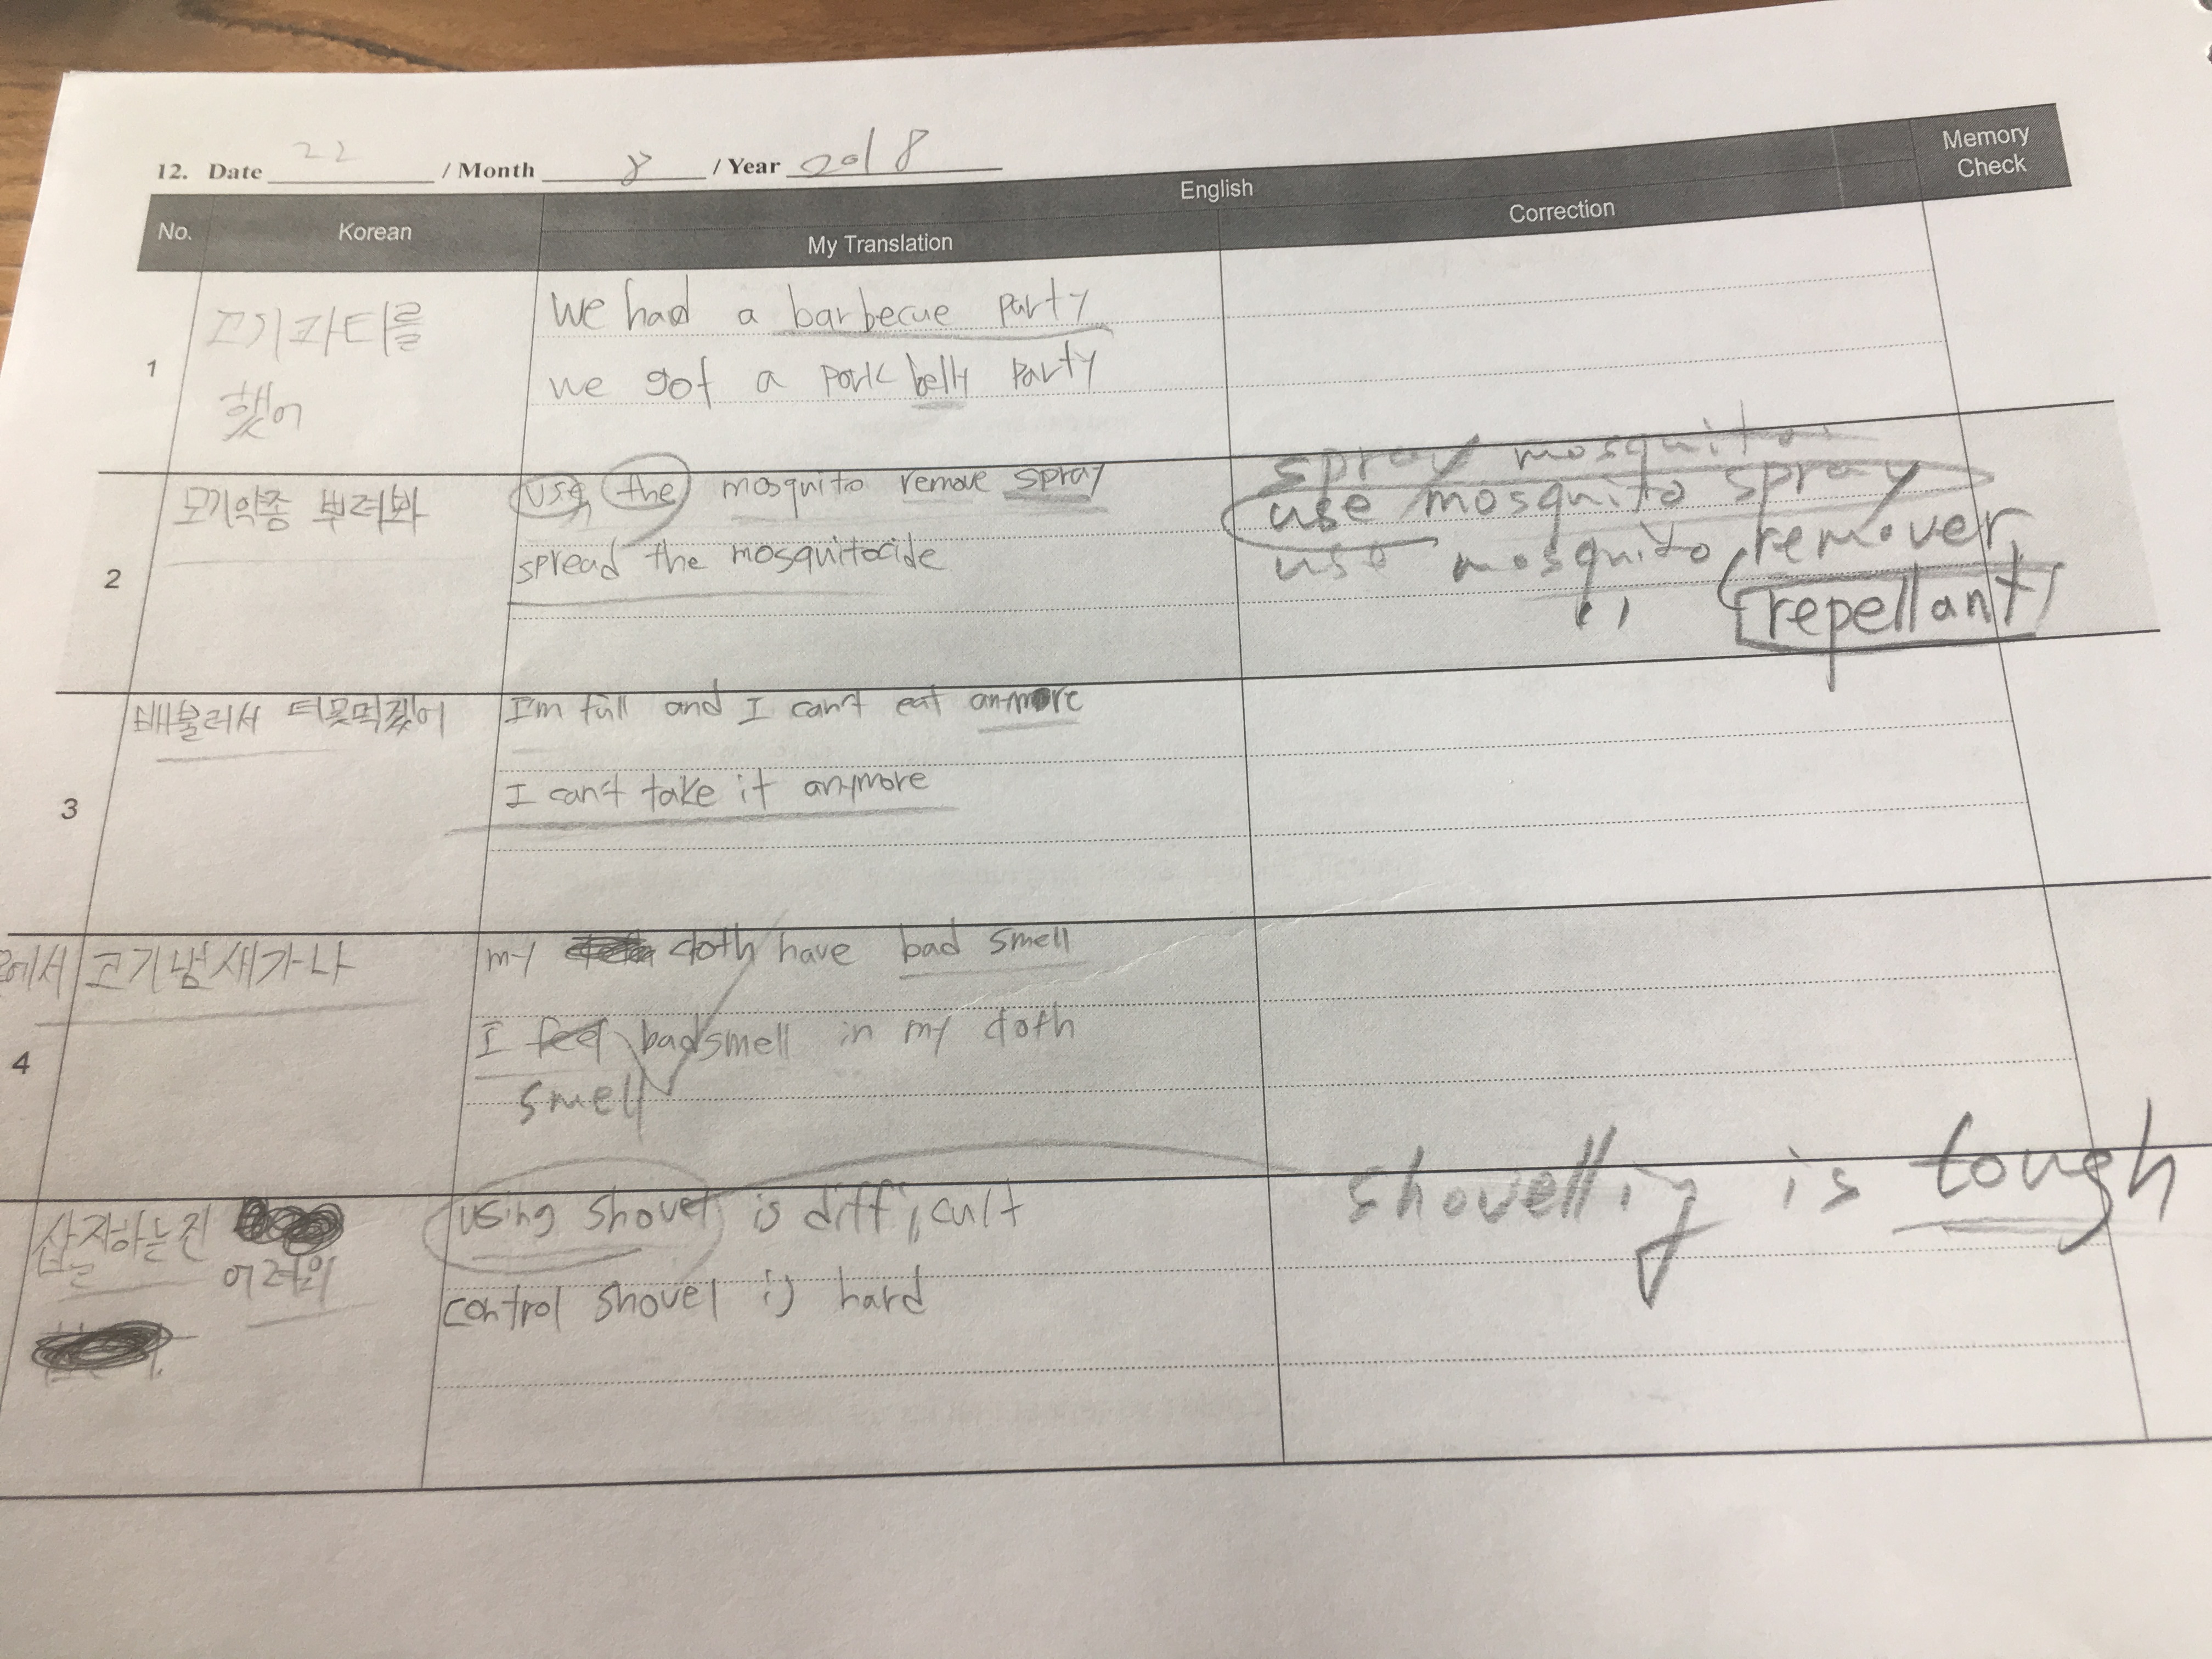 12. Date 22 / Month 8 / Year 2018
No. Korean English Memory Check
My Translation Correction
1 고기파티를 했어
We had a barbecue party
we got a pork belly party
2 모기약좀 뿌려봐
Use the mosquito remove spray
spread the mosquitocide
spray mosquito
use mosquito spray
use mosquito remover
" repellant
3 배불러서 더못먹겠어
I'm full and I can't eat anymore
I can't take it anymore
4 에서 고기냄새가나
my cloth have bad smell
I feel bad smell in my cloth
smell
삽질하는건 어려워
using shovel is difficult
control shovel is hard
shovellig is tough